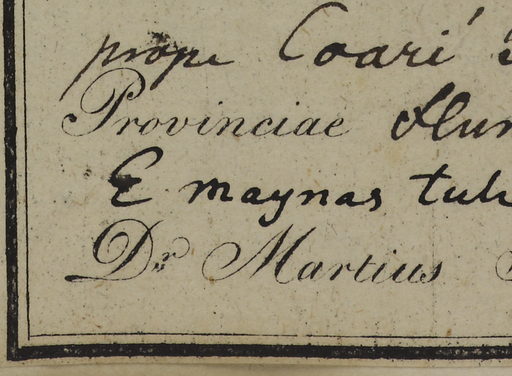 prope Coari
Provinciae
E maynas
Dr. Martius